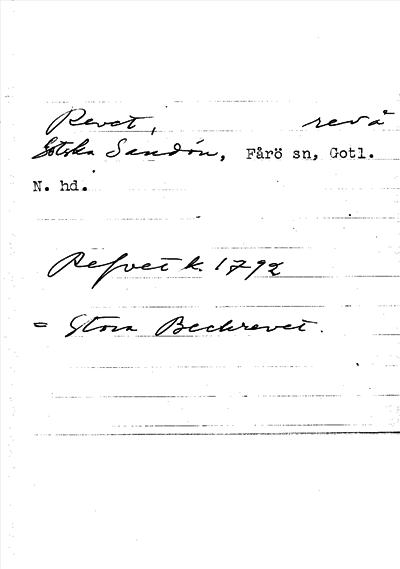 Revet, revå
Gotska Sandön, Fårö sn, Gotl.
N. hd.
Refvet k. 1792
= Stora Beckrevet.